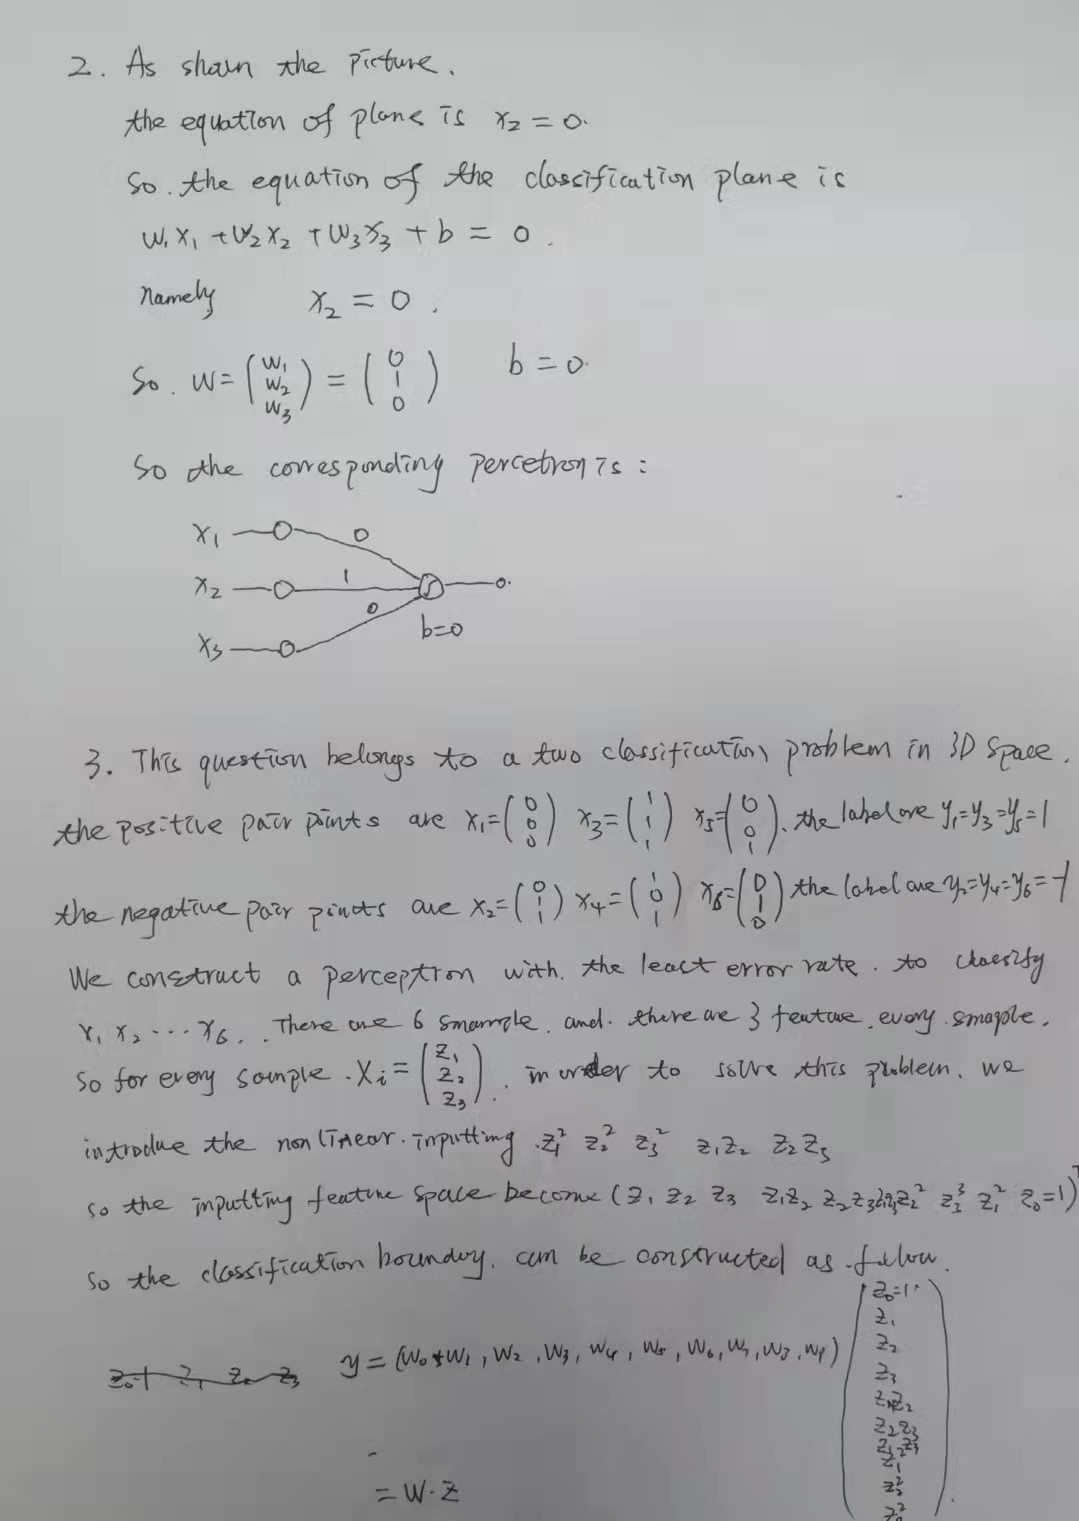 2. As shown the picture.
the equation of plane is x₂ = 0.
So. the equation of the classification plane is
W₁X₁ + W₂X₂ + W₃X₃ + b = 0.
Namely X₂ = 0.
So. W = (W₁ W₂ W₃) = (0 1 0) b = 0.
So the corresponding percetron is :
X₁ 0
X₂ 1
X₃ 0 b=0
3. This question belongs to a two classification problem in 3D Space.
the positive pair points are x₁=(0 0 0) x₃=(1 1 1) x₅=(0 0 1). the label are y₁=y₃=y₅=1
the negative pair points are x₂=(0 1 1) x₄=(1 0 1) x₆=(0 1 0) the label are y₂=y₄=y₆=-1
We construct a perceptron with. the least error rate. to classify
X₁ X₂ ... X₆. There are 6 and. there are 3 feature. every
So for every sample. Xᵢ = (Z₁ Z₂ Z₃). in order to solve this problem. we
introdue the nonlinear. inputting Z₁² Z₂² Z₃² Z₁Z₂ Z₂Z₃
so the inputting feature space become (Z₁ Z₂ Z₃ Z₁Z₂ Z₂Z₃ Z₂² Z₃³ Z₁² Z₀=1)ᵀ
So the classification boundary. can be constructed as follow.
y = (W₀ W₁, W₂, W₃, W₄, W₅, W₆, W₇, W₈, W₉) (Z₀=1 Z₁ Z₂ Z₃ Z₁Z₂ Z₂Z₃
= W·Z